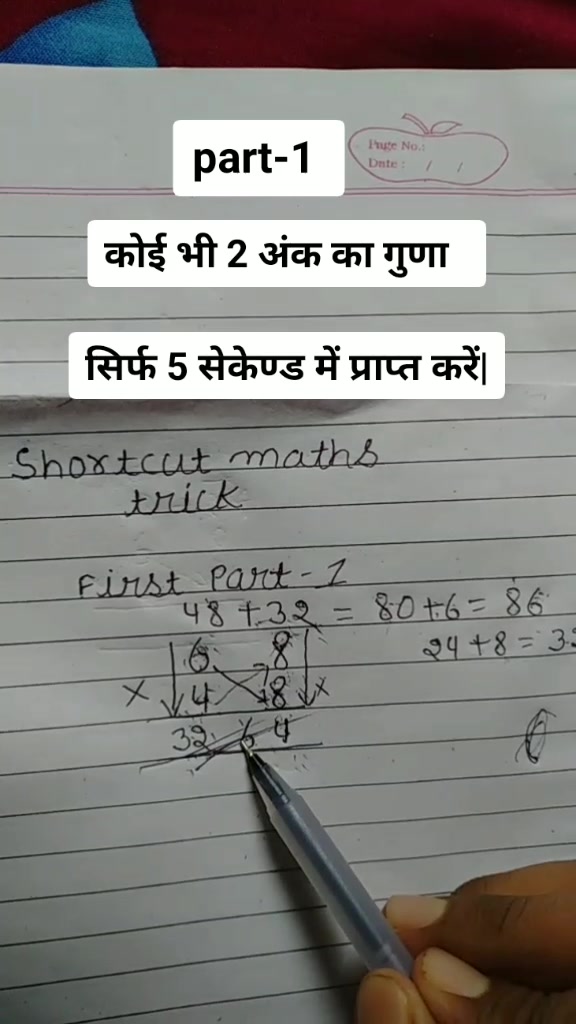 part-1
Page No.:
Date : / /
कोई भी 2 अंक का गुणा
सिर्फ 5 सेकेण्ड में प्राप्त करें|
Shortcut maths
trick
First Part-1
48 + 32 = 80+6 = 86
6 8 24 + 8 = 32
× 4 8 ×
32 6 4